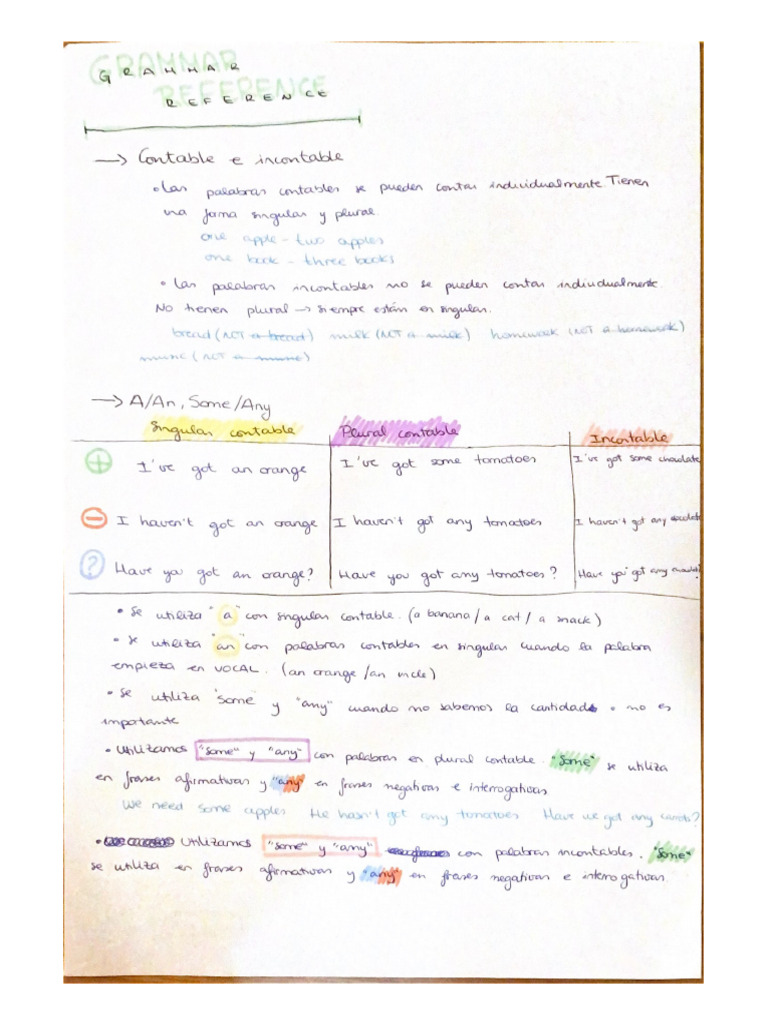 GRAMMAR
REFERENCE
→ Contable e incontable
• Las palabras contables se pueden contar individualmente. Tienen
una forma singular y plural.
one apple - two apples
one book - three books
• Las palabras incontables no se pueden contar individualmente.
No tienen plural → siempre están en singular.
bread (NOT a bread) milk (NOT a milk) homework (NOT a homework)
music (NOT a music)
→ A/An, Some/Any
Singular contable Plural contable Incontable
+ I've got an orange I've got some tomatoes I've got some chocolate
- I haven't got an orange I haven't got any tomatoes I haven't got any chocolate
? Have you got an orange? Have you got any tomatoes? Have you got any chocolate?
• Se utiliza "a" con singular contable. (a banana / a cat / a snack)
• Se utiliza "an" con palabras contables en singular cuando la palabra
empieza en VOCAL. (an orange / an uncle)
• Se utiliza "some" y "any" cuando no sabemos la cantidad o no es
importante
• Utilizamos "some" y "any" con palabras en plural contable. "Some" se utiliza
en frases afirmativas y "any" en frases negativas e interrogativas.
We need some apples He hasn't got any tomatoes Have we got any carrots?
• Utilizamos "some" y "any" con palabras incontables. "Some"
se utiliza en frases afirmativas y "any" en frases negativas e interrogativas.